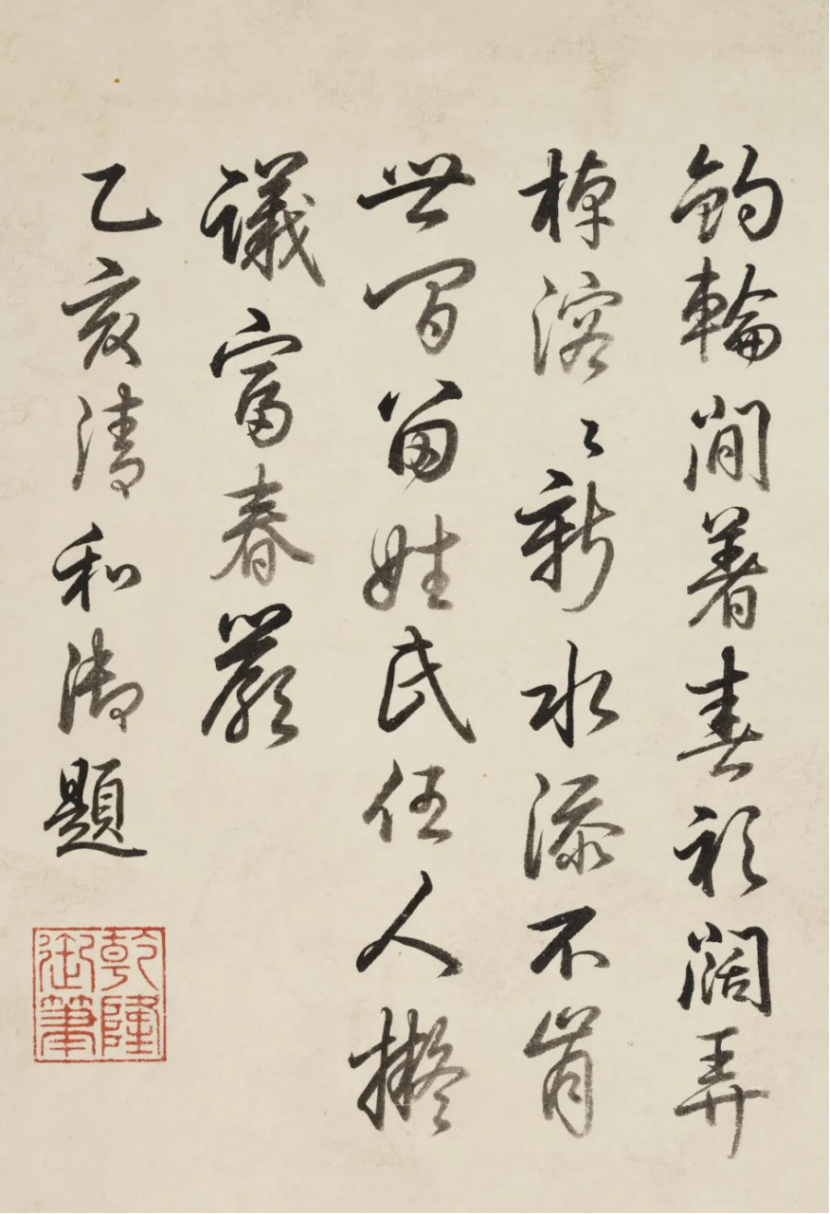 釣輪閒著春衫闊弄
棹溶〻新水添不肯
世間留姓氏任人擬
議富春嚴
乙亥清和御題
乾隆御筆